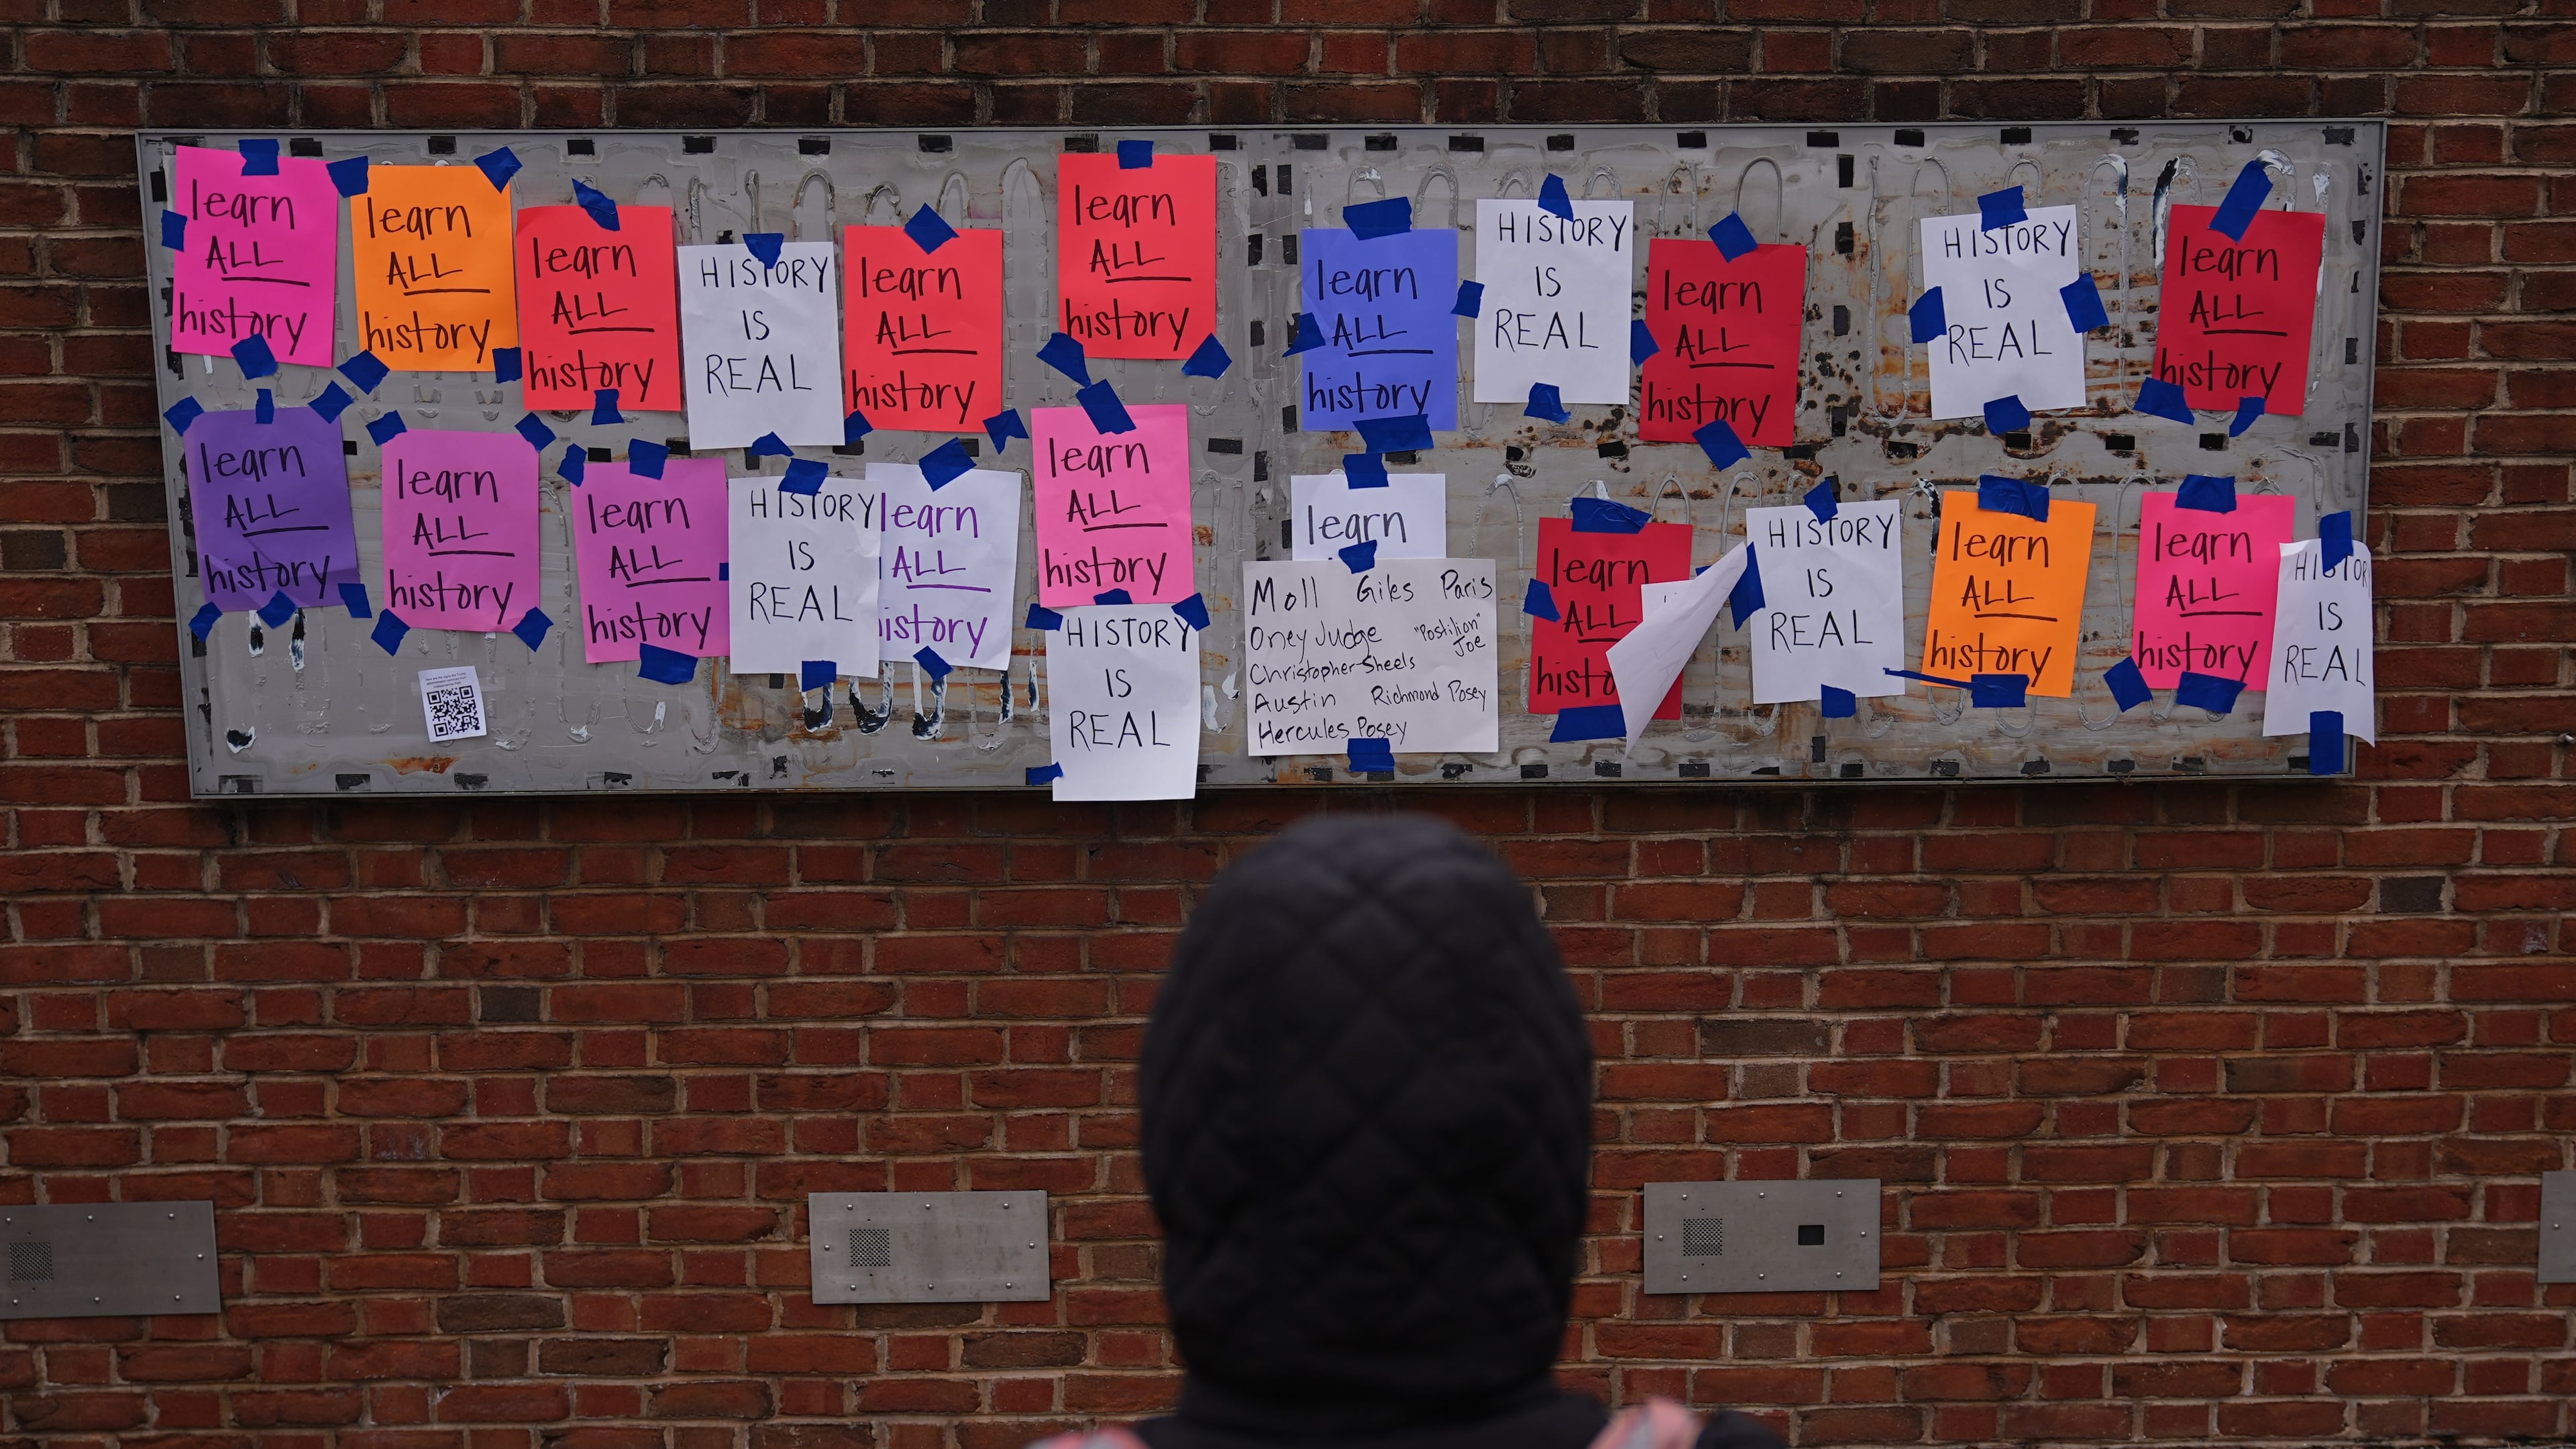 learn
ALL
history
learn
ALL
history
learn
ALL
history
HISTORY
IS
REAL
learn
ALL
history
learn
ALL
history
learn
ALL
history
HISTORY
IS
REAL
learn
ALL
history
HISTORY
IS
REAL
learn
ALL
history
learn
ALL
history
learn
ALL
history
learn
ALL
history
HISTORY
IS
REAL
learn
ALL
istory
learn
ALL
history
HISTORY
IS
REAL
learn
Moll Giles Paris
Oney Judge "Postilion" Joe
Christopher Sheels
Austin Richmond Posey
Hercules Posey
learn
ALL
histo
HISTORY
IS
REAL
learn
ALL
history
learn
ALL
history
HISTOR
IS
REAL